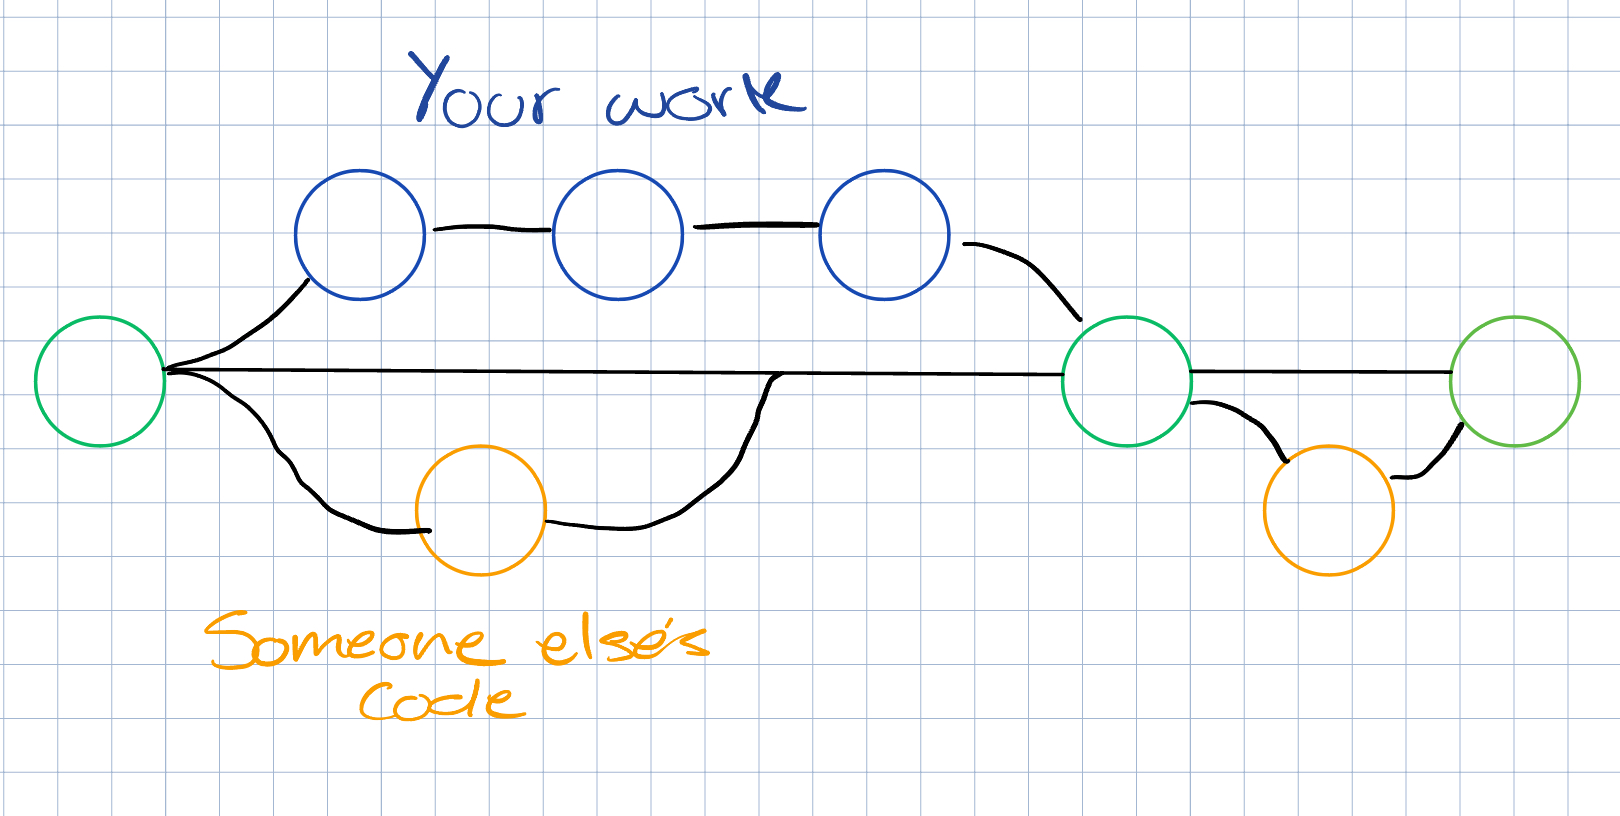 Your work
Someone else's
Code